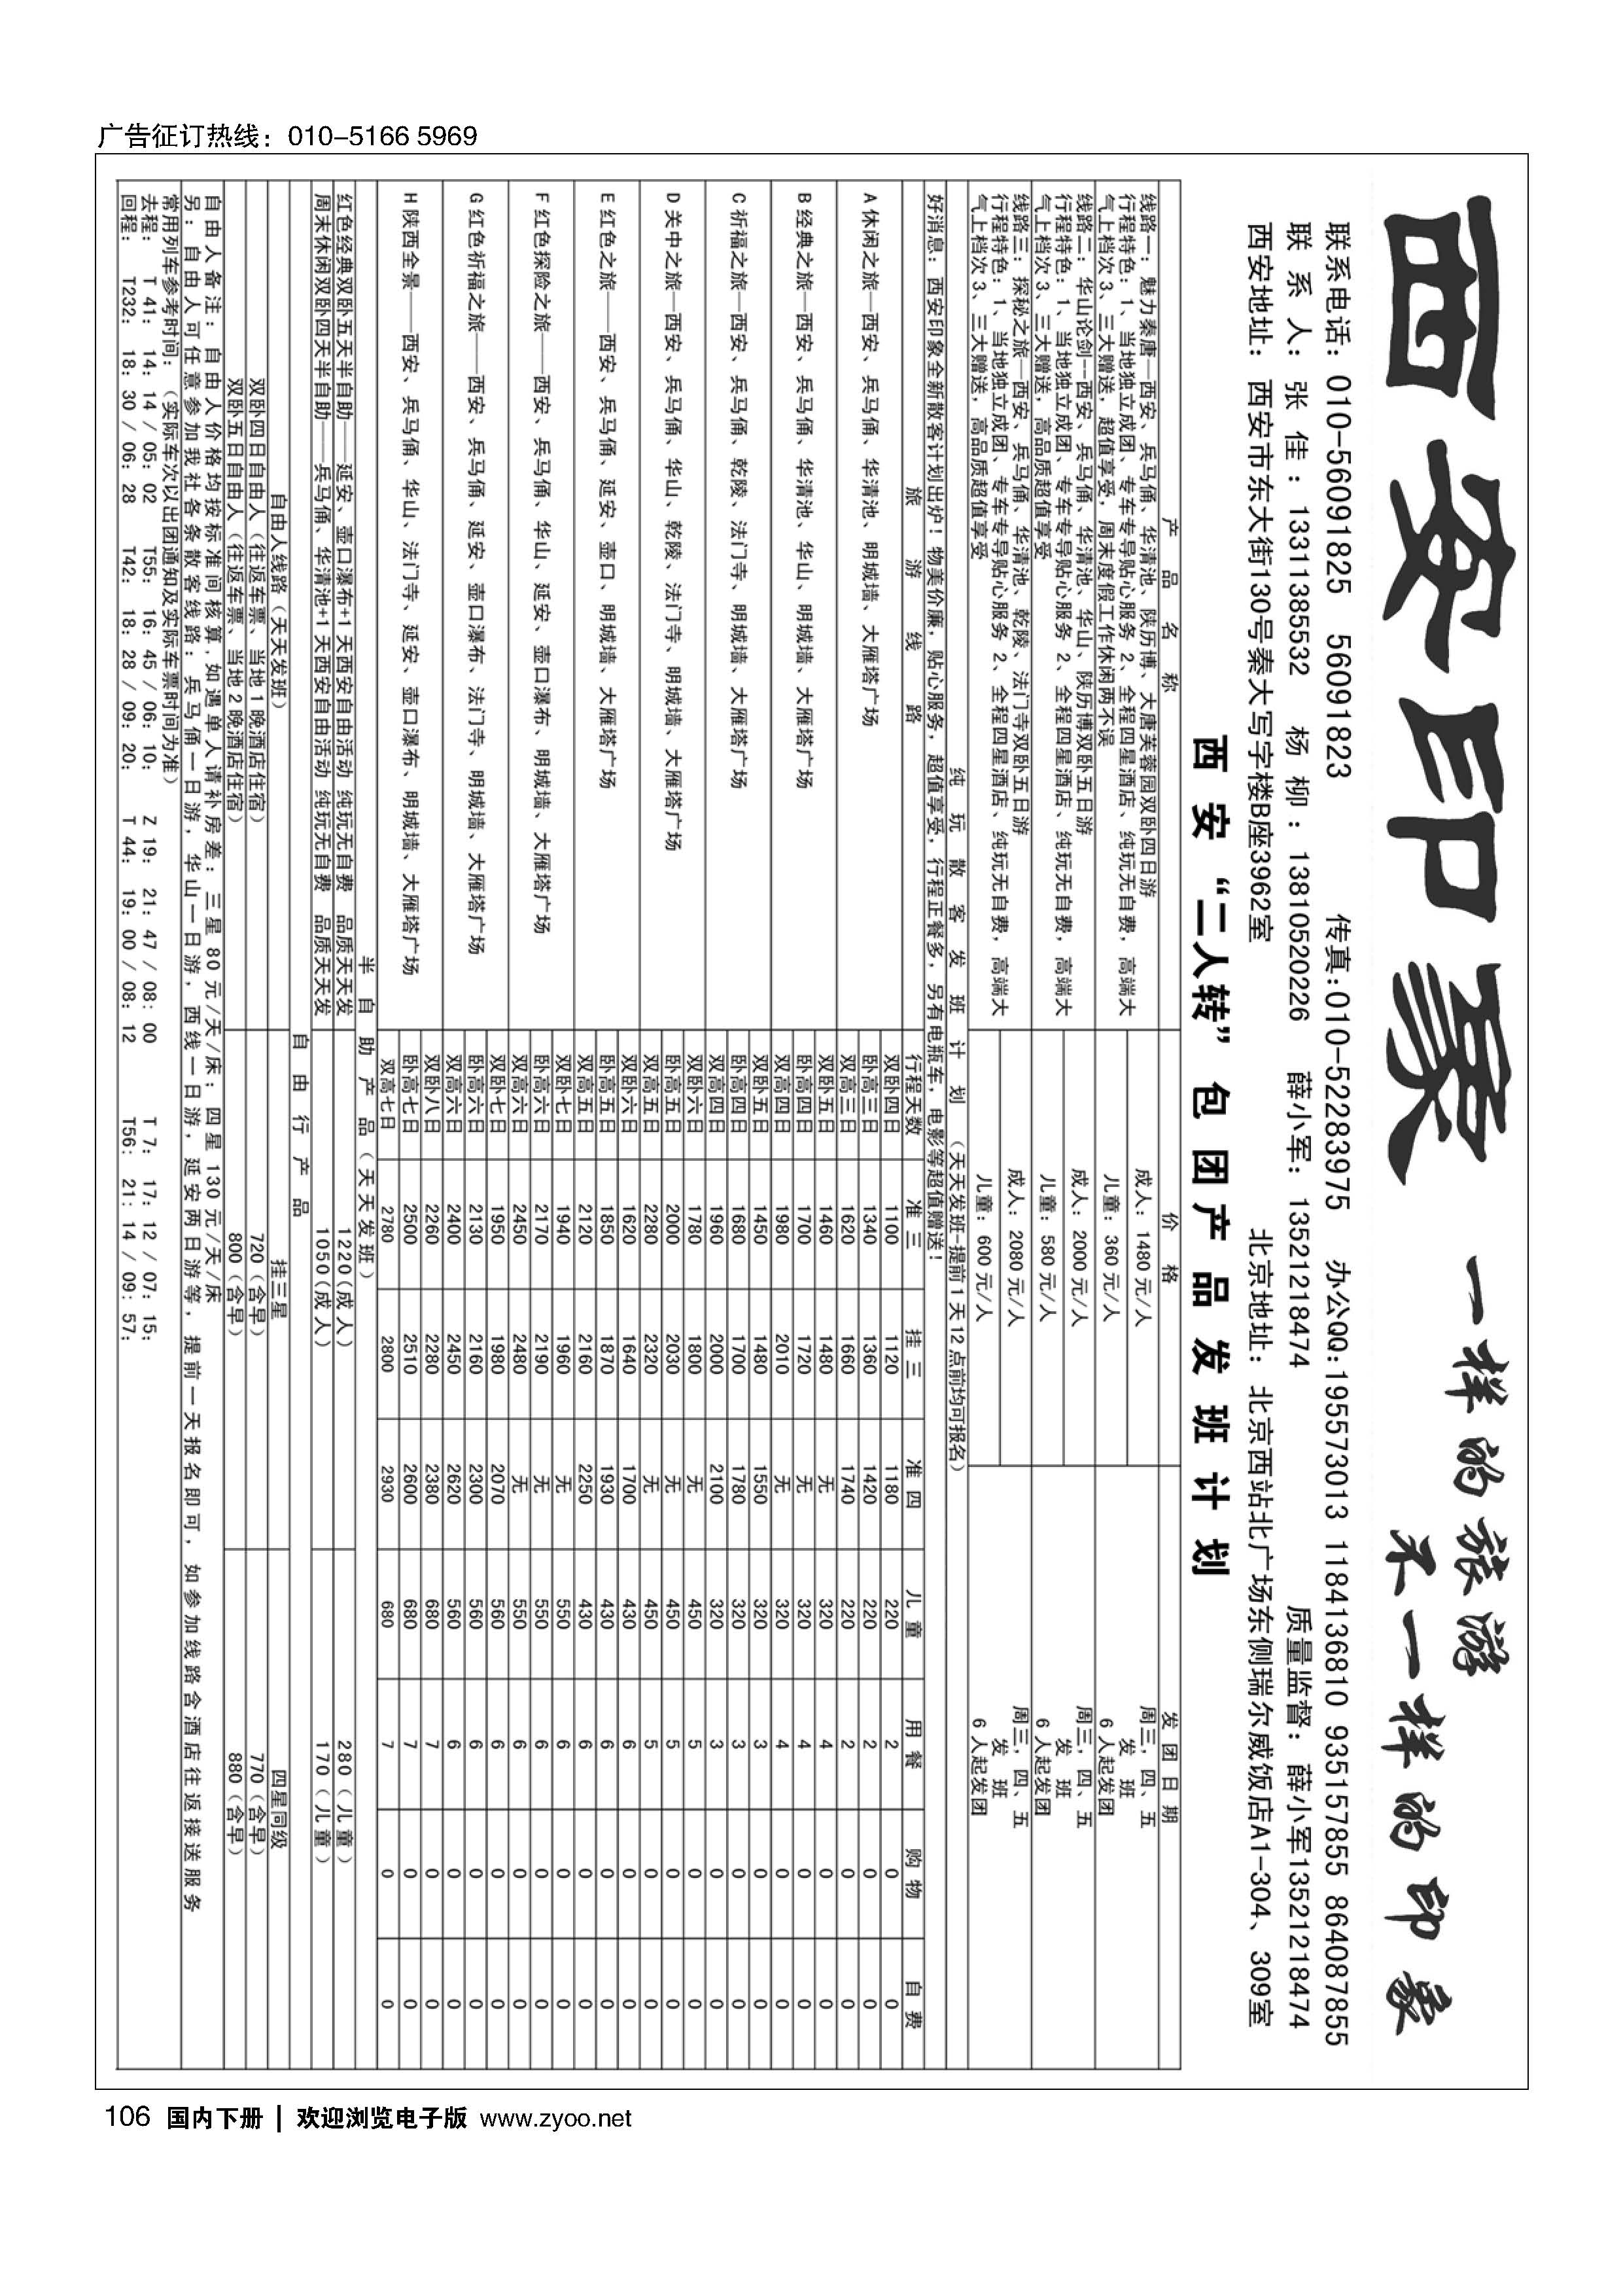 广告征订热线：010-5166 5969
西安印象
一样的旅游
不一样的印象
联系电话：010-56091825 56091823 传真:010-52283975 办公QQ:195573013 1184136810 935157855 864087855
联 系 人：张 佳：13311385532 杨 柳：13810520226 薛小军：13521218474 质量监督：薛小军13521218474
西安地址：西安市东大街130号秦大写字楼B座3962室 北京地址：北京西站北广场东侧瑞尔威饭店A1-304、309室
西安“二人转”包团产品发班计划
产 品 名 称 价 格 发 团 日 期
线路一：魅力秦唐—西安、兵马俑、华清池、陕历博、大唐芙蓉园双卧四日游
行程特色：1、当地独立成团、专车专导贴心服务 2、全程四星酒店、纯玩无自费，高端大
气上档次 3、三大赠送，超值享受，周末度假工作休闲两不误
成人：1480 元/人
儿童：360 元/人
周三，四、五
发 班
6 人起发团
线路二：华山论剑--西安、兵马俑、华清池、华山、陕历博双卧五日游
行程特色：1、当地独立成团、专车专导贴心服务 2、全程四星酒店、纯玩无自费，高端大
气上档次 3、三大赠送，高品质超值享受
成人：2000 元/人
儿童：580 元/人
周三，四、五
发 班
6 人起发团
线路三：探秘之旅—西安、兵马俑、华清池、乾陵、法门寺双卧五日游
行程特色：1、当地独立成团、专车专导贴心服务 2、全程四星酒店、纯玩无自费，高端大
气上档次 3、三大赠送，高品质超值享受
成人：2080 元/人
儿童：600 元/人
周三，四、五
发 班
6 人起发团
纯 玩 散 客 发 班 计 划 （天天发班-提前 1 天 12 点前均可报名）
好消息：西安印象全新散客计划出炉！物美价廉，贴心服务，超值享受，行程正餐多，另有电瓶车，电影等超值赠送！
旅 游 线 路 行程天数 准 三 挂 三 准 四 儿 童 用 餐 购 物 自 费
A 休闲之旅—西安、兵马俑、华清池、明城墙、大雁塔广场
双卧四日 1100 1120 1180 220 2 0 0
卧高三日 1340 1360 1420 220 2 0 0
双高三日 1620 1660 1740 220 2 0 0
B 经典之旅—西安、兵马俑、华清池、华山、明城墙、大雁塔广场
双卧五日 1460 1480 无 320 4 0 0
卧高四日 1700 1720 无 320 4 0 0
双高四日 1980 2010 无 320 4 0 0
C 祈福之旅—西安、兵马俑、乾陵、法门寺、明城墙、大雁塔广场
双卧五日 1450 1480 1550 320 3 0 0
卧高四日 1680 1700 1780 320 3 0 0
双高四日 1960 2000 2100 320 3 0 0
D 关中之旅—西安、兵马俑、华山、乾陵、法门寺、明城墙、大雁塔广场
双卧六日 1780 1800 无 450 5 0 0
卧高五日 2000 2030 无 450 5 0 0
双高五日 2280 2320 无 450 5 0 0
E 红色之旅——西安、兵马俑、延安、壶口、明城墙、大雁塔广场
双卧六日 1620 1640 1700 430 6 0 0
卧高五日 1850 1870 1930 430 6 0 0
双高五日 2120 2160 2250 430 6 0 0
F 红色探险之旅——西安、兵马俑、华山、延安、壶口瀑布、明城墙、大雁塔广场
双卧七日 1940 1960 无 550 6 0 0
卧高六日 2170 2190 无 550 6 0 0
双高六日 2450 2480 无 550 6 0 0
G 红色祈福之旅——西安、兵马俑、延安、壶口瀑布、法门寺、明城墙、大雁塔广场
双卧七日 1950 1980 2070 560 6 0 0
卧高六日 2130 2160 2300 560 6 0 0
双高六日 2400 2450 2620 560 6 0 0
H 陕西全景——西安、兵马俑、华山、法门寺、延安、壶口瀑布、明城墙、大雁塔广场
双卧八日 2260 2280 2380 680 7 0 0
卧高七日 2500 2510 2600 680 7 0 0
双高七日 2780 2800 2930 680 7 0 0
半 自 助 产 品（天天发班）
红色经典双卧五天半自助——延安、壶口瀑布+1 天西安自由活动 纯玩无自费 品质天天发 1220（成人） 280（儿童）
周末休闲双卧四天半自助——兵马俑、华清池+1 天西安自由活动 纯玩无自费 品质天天发 1050（成人） 170（儿童）
自 由 行 产 品
自由人线路（天天发班） 挂三星 四星同级
双卧四日自由人（往返车票、当地 1 晚酒店住宿） 720（含早） 770（含早）
双卧五日自由人（往返车票、当地 2 晚酒店住宿） 800（含早） 880（含早）
自由人备注：自由人价格均按标准间核算，如遇单人请补房差：三星 80 元/天/床；四星 130 元/天/床
另：自由人可任意参加我社各条散客线路：兵马俑一日游，华山一日游，西线一日游，延安两日游等，提前一天报名即可，如参加线路含酒店往返接送服务
常用列车参考时间：（实际车次以出团通知及实际车票时间为准）
去程： T 41： 14：14 / 05：02 T55： 16：45 / 06：10： Z 19： 21：47 / 08：00 T 7： 17：12 / 07：15：
回程： T232： 18：30 / 06：28 T42： 18：28 / 09：20： T 44： 19：00 / 08：12 T56： 21：14 / 09：57：
106 国内下册 | 欢迎浏览电子版 www.zyoo.net